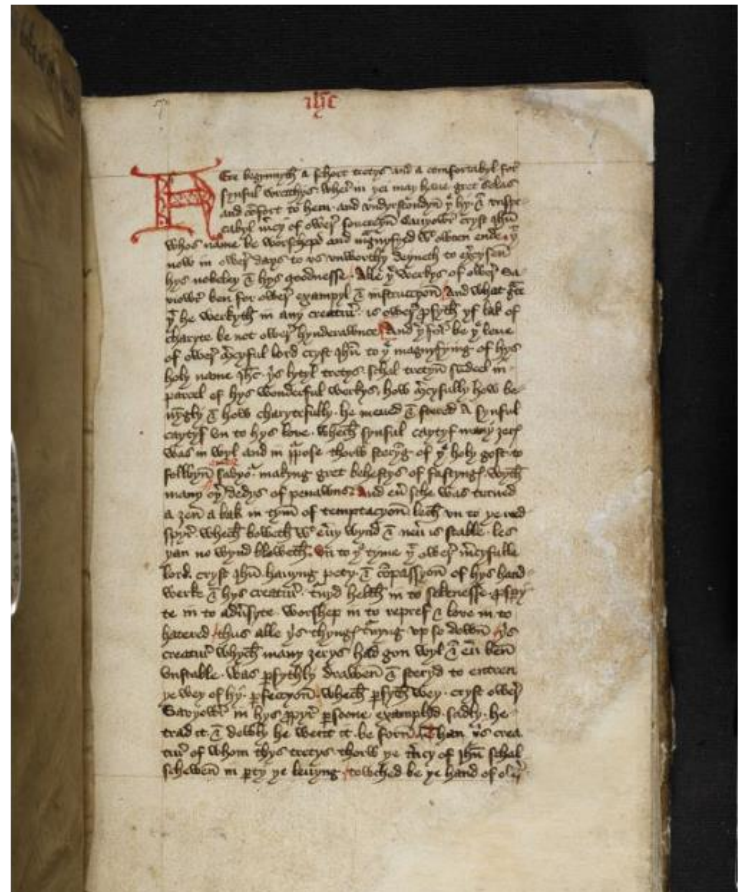 ihc
Here begynnyth a schort tretys and a comfortabyl for
synful wrecchys. wher in þei may haue gret solas
and cōfort to hem. and vndyrstondyn þe hy & vnspe
cabyl m̄cy of ower souereyn Sauyowr cryst ihū
whos name be worschepd and magnyfyed wtowten ende. þt
now in ower days to vs vnworthy deyneth to exsersysen
hys nobeley & hys goodnesse. Alle þe werkys of ower Sa
viowr ben for ower exampyl & instruccyon and what grace
þt he werkyth in any creatur. is ower profyth yf lak of
charyte be not ower hynderawnce. And þerfor be þe leue
of ower mercyful lord cryst ihū to þe magnyfying of hys
holy name ihū. þis lytyl tretys schal tretyn sumdeel in
parcel of hys wonderful werkys. how mercyfully how be
nyngly & how charytefully. he meued & stered a synful
caytyf vn to hys loue. whech synful caytyf many ȝerys
was in wyl and in purpose thorw steryng of þe holy gost to
folwyn Sauyowr. makyng gret behestys of fastyngys wyth
many oþer dedys of penawns. And euyr sche was turned
a ȝen a bak in tym of temptacyon. lech vn to þe red
spyr. whech boweth wt euery wynd & neuyr is stable. les
þan no wynd bloweth. vn to þe tyme þt ower mercyfulle
lord. cryst ihū hauyng pety. & cōpassyon of hys hand
werke & hys creatur. turnyd helth in to sekenesse. prospery
te in to aduersyte worshep in to repref & loue in to
hatered. thus alle þis thyngys turnyng vp so down þis
creatur whych many ȝerys had gon wyl & euyr ben
vnstable. was parfythly drawen & steryd to entren
þe wey of hy perfeccyon. whech parfyth wey. cryst ower
Savyowr in hys propyr persoone examplyd. sadly. he
trad it & dewly he went it be forn. Than þis crea
tur of whom thys tretys thorw þe m̄cy of ihū schal
schewen in party þe leuyng. towched be þe hand of ower